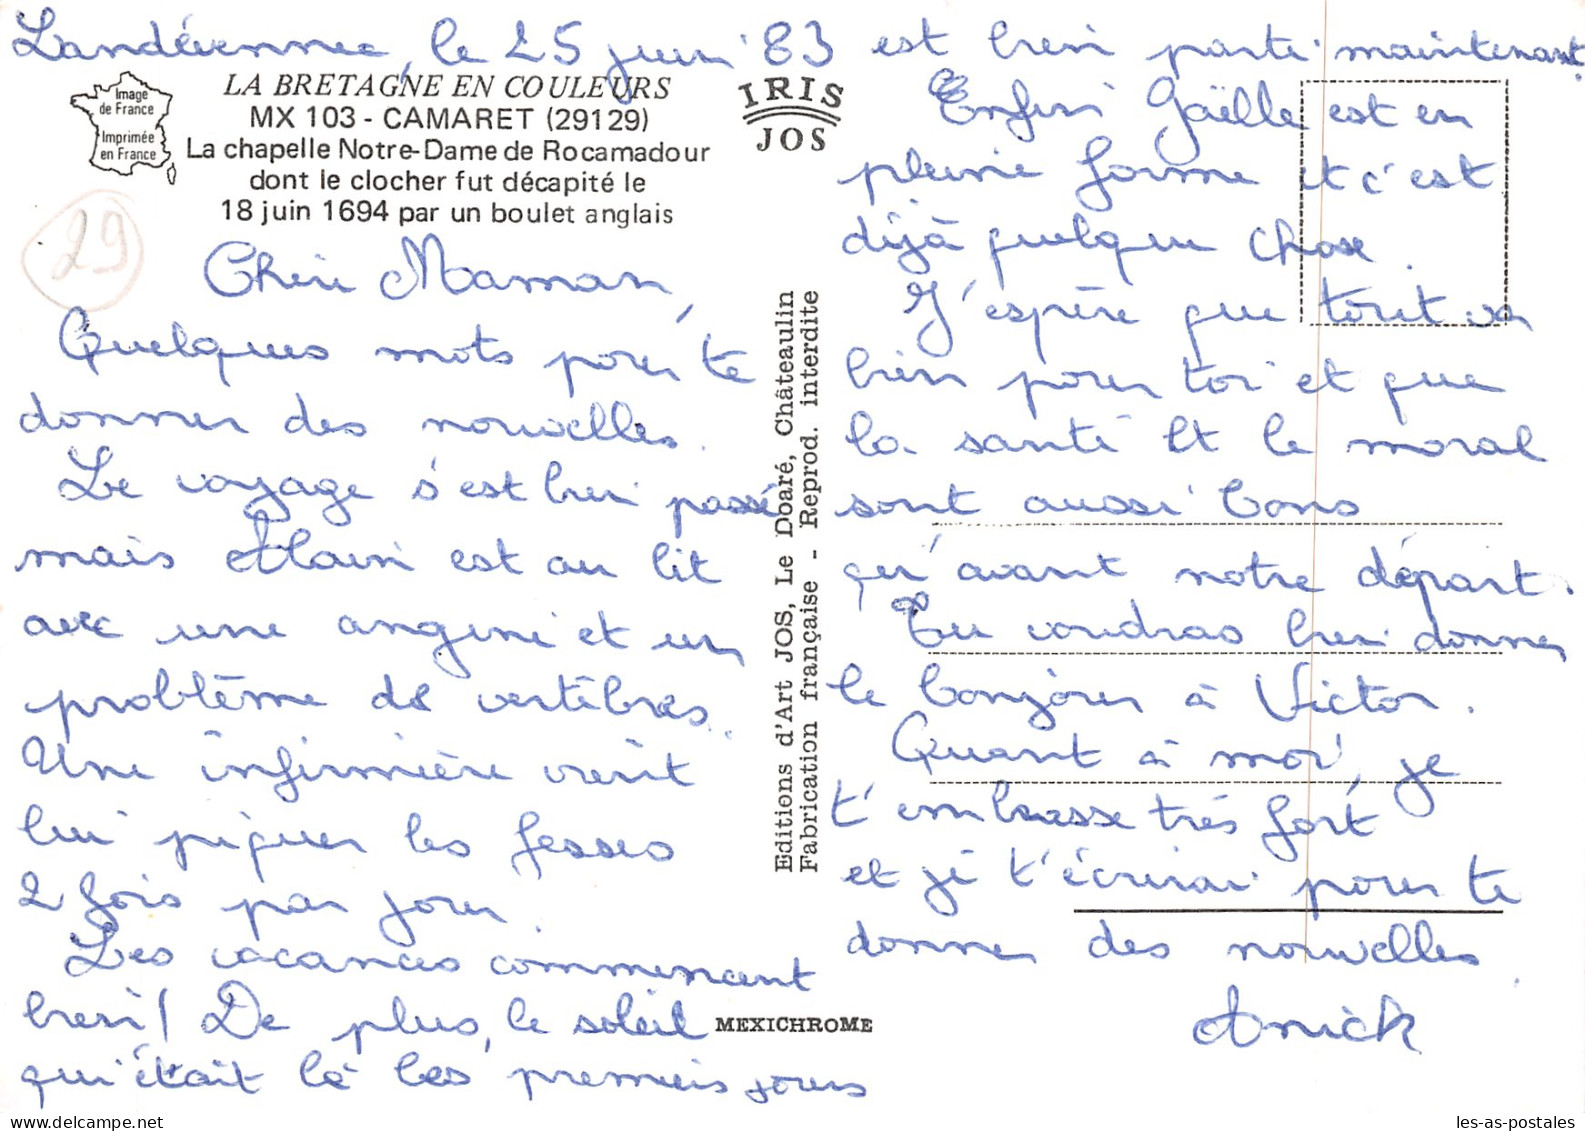 Landévennec, le 25 juin 83
Image
de France
Imprimée
en France
LA BRETAGNE EN COULEURS
MX 103 - CAMARET (29129)
La chapelle Notre-Dame de Rocamadour
dont le clocher fut décapité le
18 juin 1694 par un boulet anglais
29
IRIS
JOS
Chère Maman,
Quelques mots pour te
donner des nouvelles.
Le voyage s'est bien passé
mais Alain est au lit
avec une angine et un
problème de vertèbres.
Une infirmière vient
lui piquer les fesses
2 fois par jour.
Les vacances commencent
bien! De plus, le soleil
qui était là les premiers jours
Editions d'Art JOS, Le Doaré, Châteaulin
Fabrication française - Reprod. interdite
MEXICHROME
est bien parti maintenant.
Enfin Gaëlle est en
pleine forme et c'est
déjà quelque chose.
J'espère que tout va
bien pour toi et que
la santé et le moral
sont aussi bons
qu'avant notre départ.
Tu voudras bien donner
le bonjour à Victor.
Quant à moi, je
t'embrasse très fort
et je t'écrirai pour te
donner des nouvelles.
Anick
les-as-postales
delcampe.net